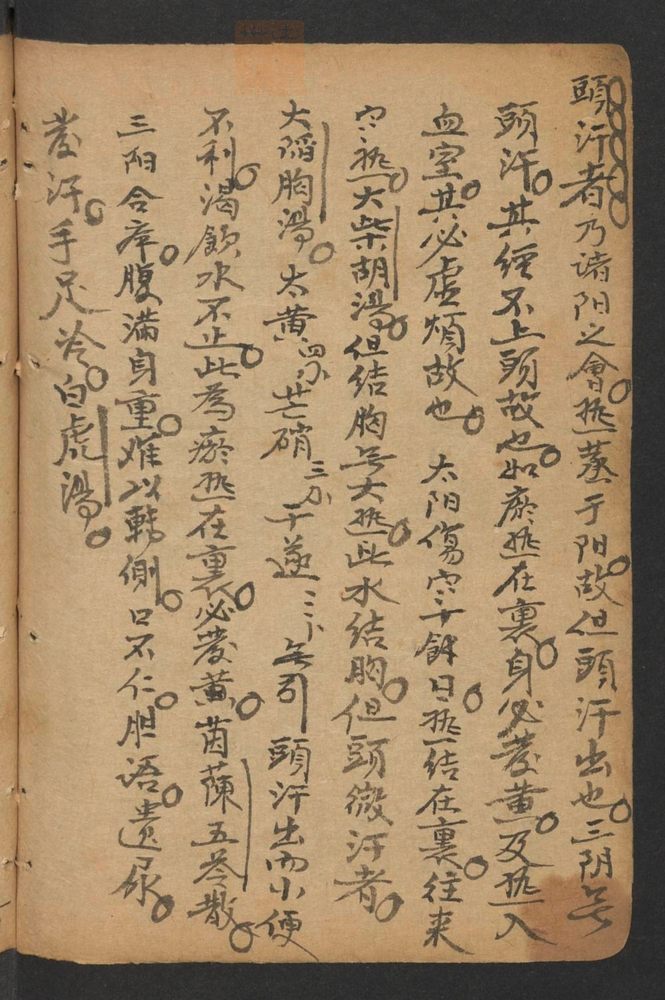 頭汗者乃諸阳之會。热蒸于阳。故但頭汗出也。三阴无
頭汗。其經不上頭故也。如瘀热在裏。身必發黄。及热入
血室。其必虚煩故也。太阳傷寒十餘日。热结在裏。往来
寒热。大柴胡湯。但结胸无大热。此水结胸。但頭微汗者。
大陷胸湯。大黄四分芒硝三分干遂三卜无引 頭汗出而小便
不利。渴飲水不止。此為瘀热在裏。必發黄。茵蔯五苓散。
三阳合病。腹满身重。难以轉側。口不仁。胆语。遗尿。
發汗。手足冷。白虎湯。